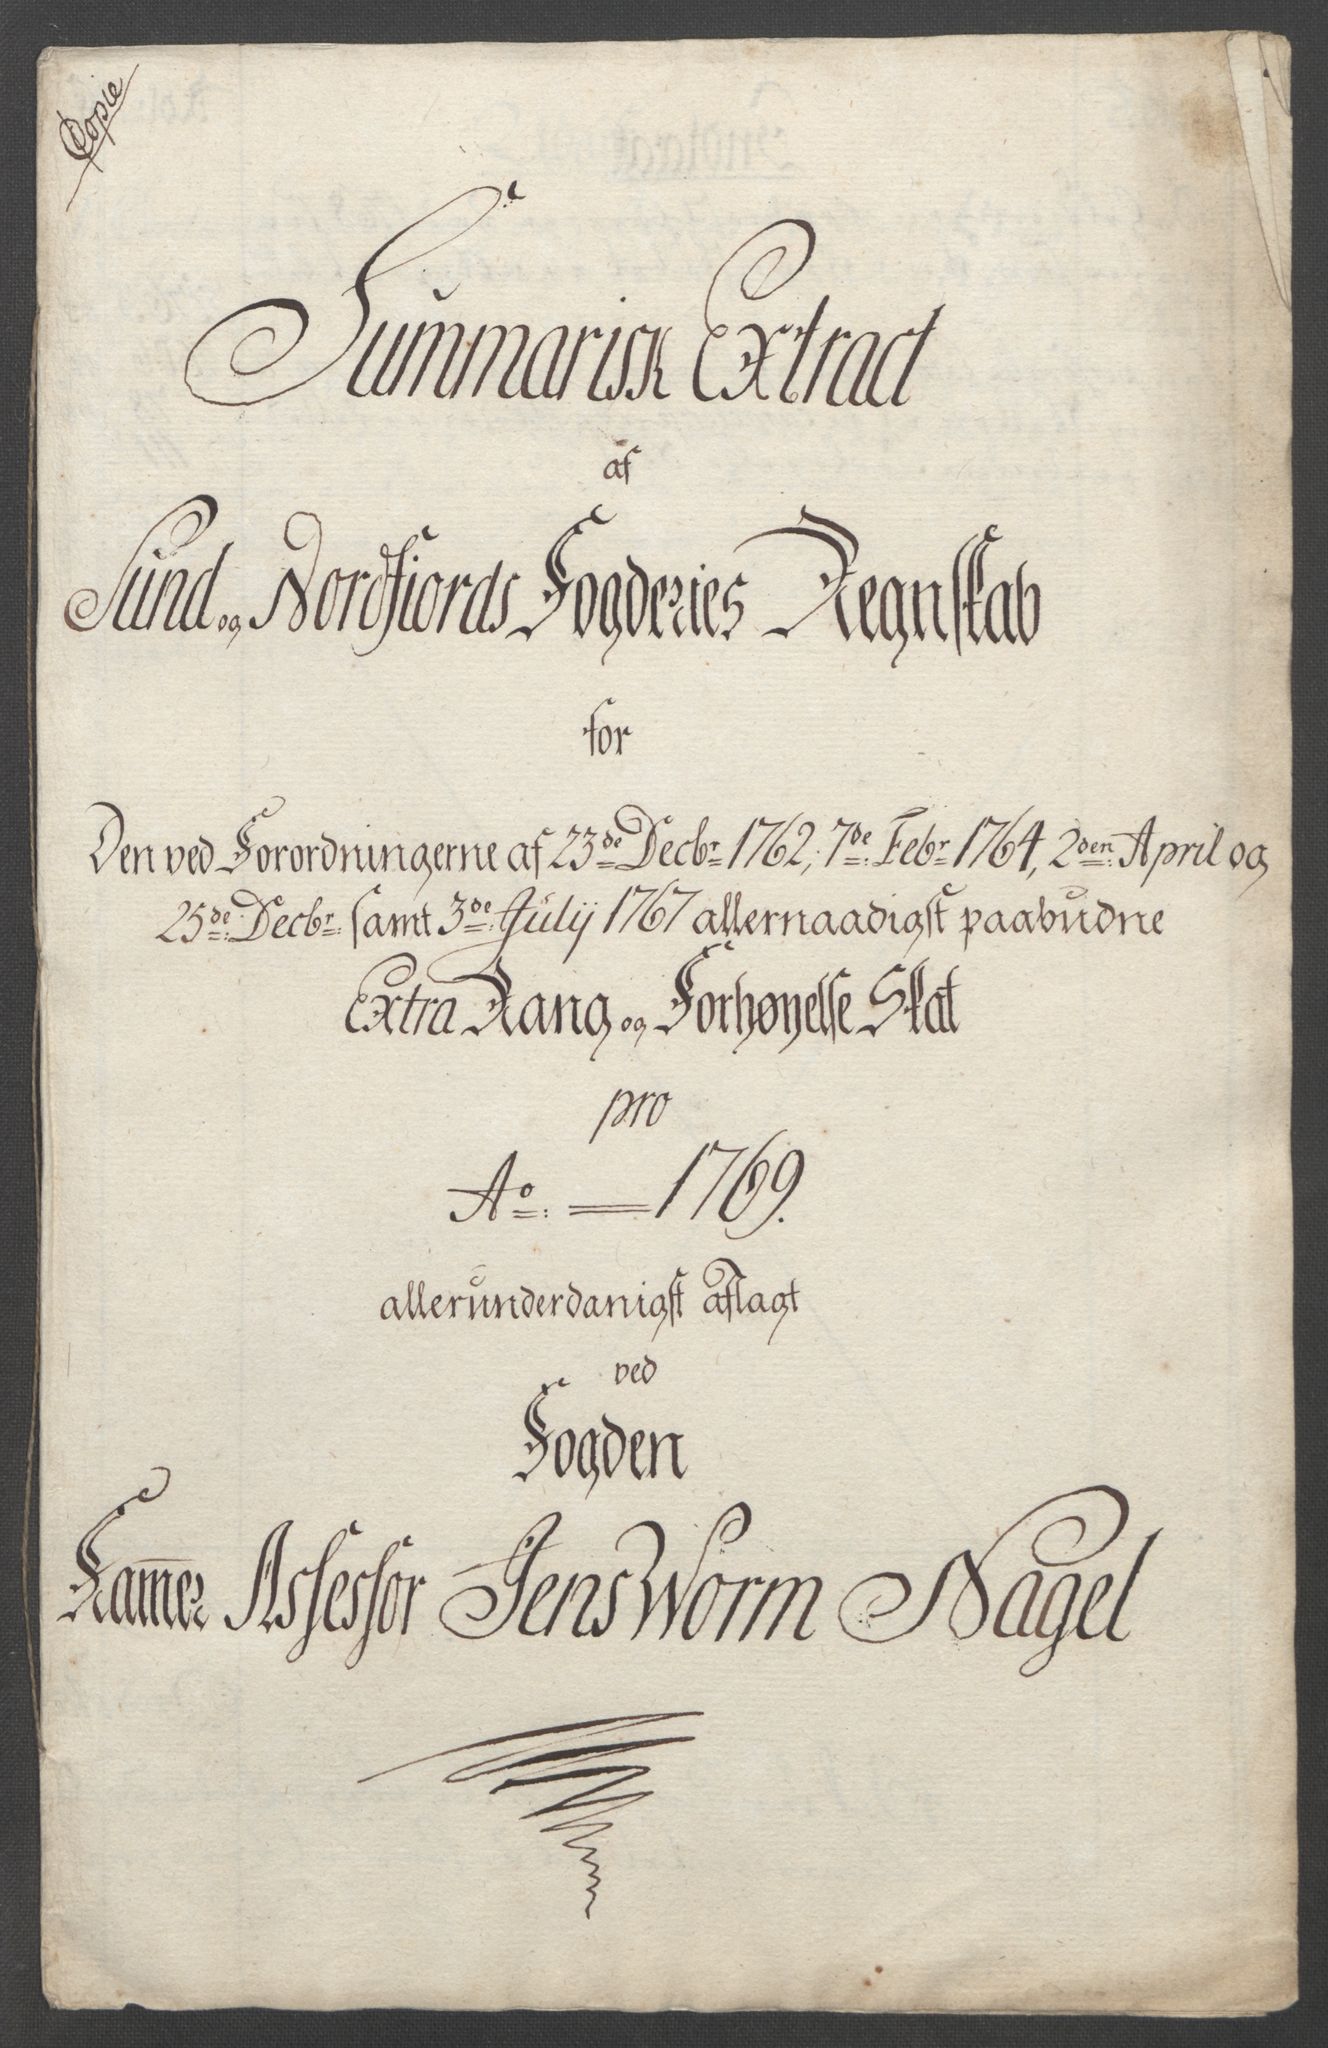 Copie
Summarisk Extract
af
Sund og Nordfiords Fogderies Regnskab
for
Den ved Forordningerne af 23de Decbr 1762, 7de Febr 1764, 2den April og
25de Decbr samt 3de Julij 1767 allernaadigst paabudne
Extra Rang og Forhøyelse Skat
pro
Ao 1769.
allerunderdanigst aflagt
ved
Fogden
Kam̅er Assessor Jens Worm Nagel